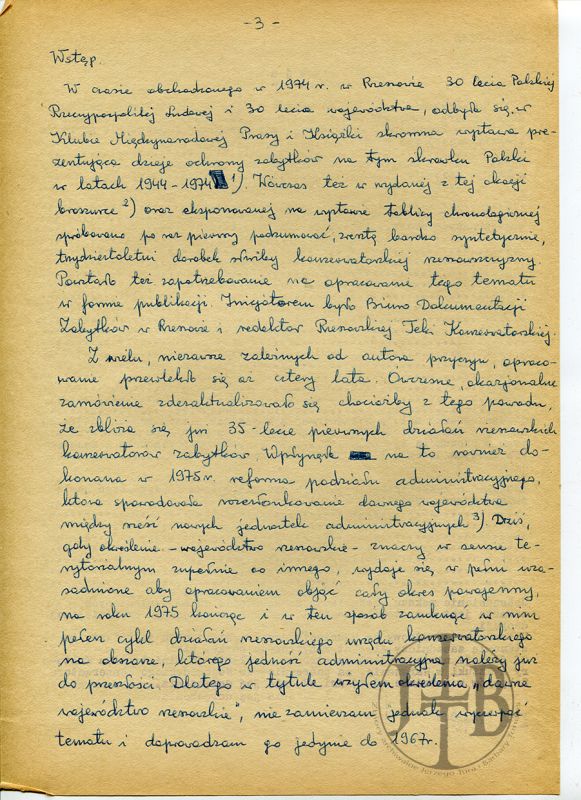 - 3 -
Wstęp.
W czasie obchodzonego w 1974 r. w Rzeszowie 30 lecia Polskiej
Rzeczypospolitej Ludowej i 30 lecia województwa, odbyła się w
Klubie Międzynarodowej Prasy i Książki skromna wystawa pre-
zentująca dzieje ochrony zabytków na tym skrawku Polski
w latach 1944-1974 1). Wówczas też w wydanej z tej okazji
broszurce 2) oraz eksponowanej na wystawie tablicy chronologicznej
spróbowano po raz pierwszy podsumować, zresztą bardzo syntetycznie,
trzydziestoletni dorobek służby konserwatorskiej rzeszowszczyzny.
Powstało też zapotrzebowanie na opracowanie tego tematu
w formie publikacji. Inicjatorem było Biuro Dokumentacji
Zabytków w Rzeszowie i redaktor Rzeszowskiej Teki Konserwatorskiej.
Z wielu, nie zawsze zależnych od autora przyczyn, opraco-
wanie przewlekło się aż cztery lata. Ówczesne, okazjonalne
zamówienie zdezaktualizowało się chociażby z tego powodu,
że zbliża się już 35-lecie pierwszych działań rzeszowskich
konserwatorów zabytków. Wpłynęła na to również do-
konana w 1975 r. reforma podziału administracyjnego,
która spowodowała rozczłonkowanie dawnego województwa
między sześć nowych jednostek administracyjnych 3). Dziś,
gdy określenie - województwo rzeszowskie - znaczy w sensie te-
rytorialnym zupełnie co innego, wydaje się w pełni uza-
sadnione aby opracowaniem objąć cały okres powojenny,
na roku 1975 kończąc i w ten sposób zamknąć w nim
pełen cykl działań rzeszowskiego urzędu konserwatorskiego
na obszarze, którego jedność administracyjna należy już
do przeszłości. Dlatego w tytule użyłem określenia „dawne
województwo rzeszowskie", nie zamierzam jednak wyczerpać
tematu i doprowadzam go jedynie do 1967 r.
HB